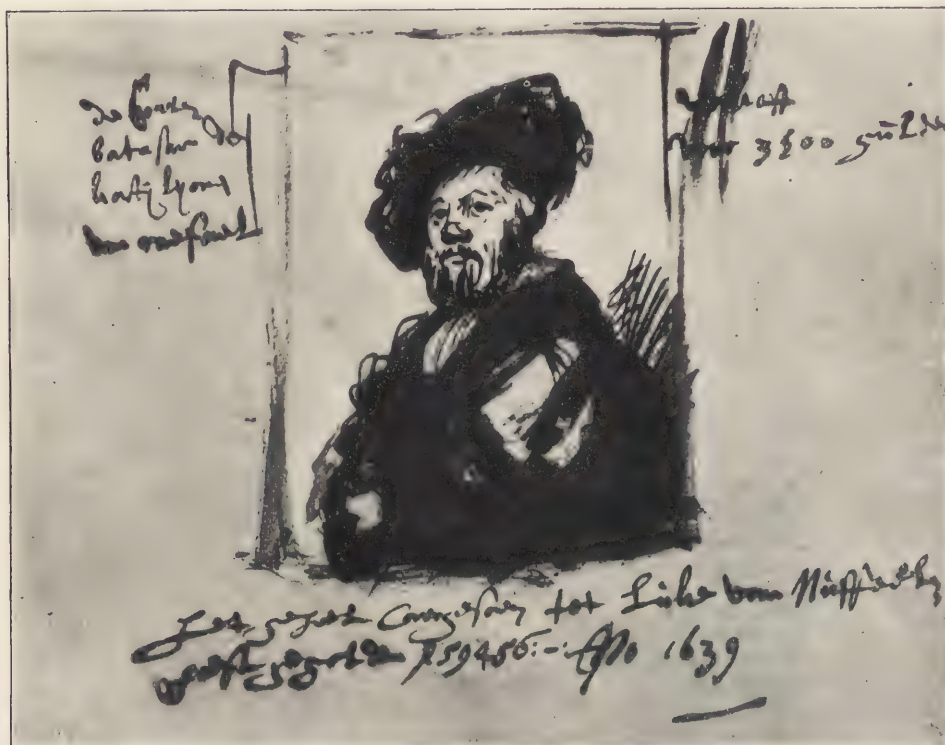 de Conte
batasar de
kastijlijone
van raefael
verkoft
voor 3500 gulde
het geheel Caergesoen tot Luke van Nuffeelen
heeft gegolden f 59456:- Ano 1639